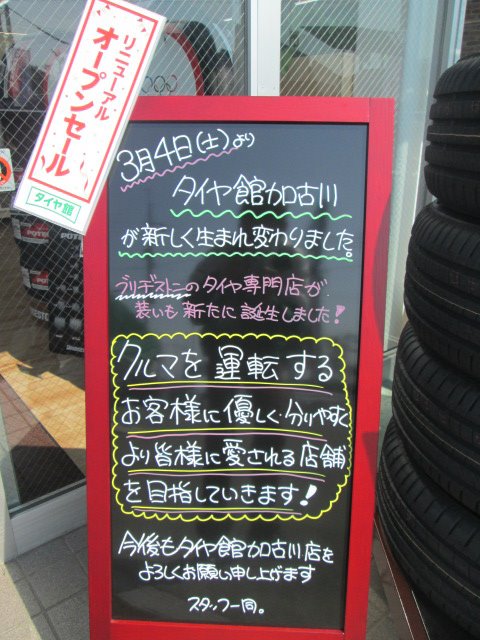 リニューアル
オープンセール
タイヤ館
3月4日(土)より
タイヤ館加古川
が新しく生まれ変わりました。
ブリヂストンのタイヤ専門店が
装いも新たに誕生しました!
クルマを運転する
お客様に優しく・分りやすく
より皆様に愛される店舗
を目指していきます!
今後もタイヤ館加古川店を
よろしくお願い申し上げます
スタッフ一同。